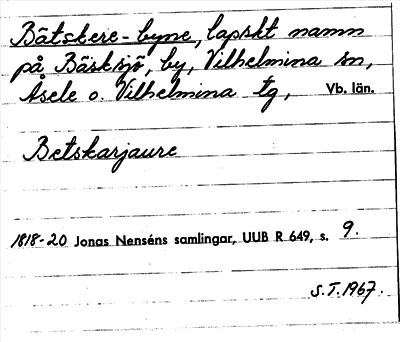 Båtskere-byne, lapskt namn
på Bäsksjö, by, Vilhelmina sn,
Åsele o. Vilhelmina tg, Vb. län.
Betskarjaure
1818-20 Jonas Nenséns samlingar, UUB R 649, s. 9.
S.T. 1967.